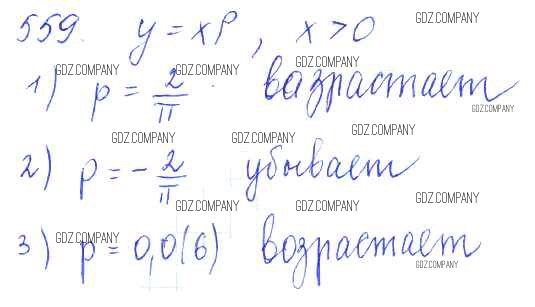 559. y = x^p, x > 0
GDZ.COMPANY
GDZ.COMPANY GDZ.COMPANY GDZ.COMPANY
1) p = 2/π. вазрастает
GDZ.COMPANY
GDZ.COMPANY GDZ.COMPANY GDZ.COMPANY
2) p = -2/π убывает
GDZ.COMPANY GDZ.COMPANY GDZ.COMPANY
3) p = 0,0(6) возрастает
GDZ.COMPANY
GDZ.COMPANY